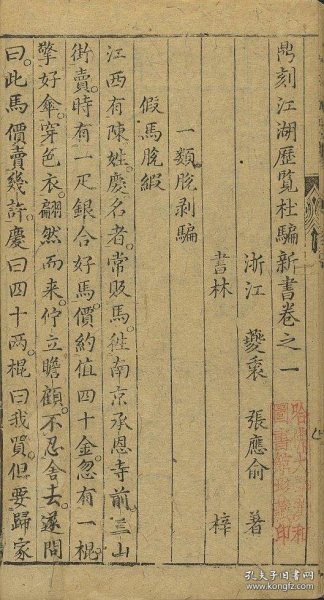 鼎刻江湖歷覽杜騙新書卷之一
浙江 夔衷 張應俞 著
書林 梓
一類脫剥騙
假馬脫緞
江西有陳姓慶名者。常販馬徃南京承恩寺前三山
街賣。時有一疋銀合好馬價約值四十金。忽有一棍
擎好傘穿色衣翩然而来。佇立瞻顧不忍舍去。遂問
曰此馬價賣幾許。慶曰四十两。棍曰我買。但要歸家
孔夫子旧书网